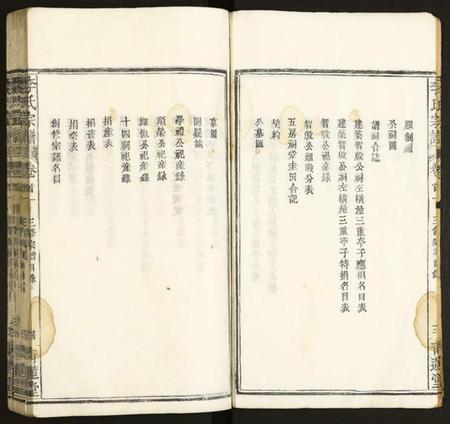 服制圖
公祠圖
譜祠合誌
建築智啟公祠左橫屋三重亭子應捐名目表
建築智啟公祠左橫屋三重亭子特捐名目表
智啟公祀產錄
智啟公祖賬分表
五房祠堂圭田合記
禁約
公墓圖
墓圖
開簇誌
學禮公祀產錄
公祀產錄
公祀產錄
十四祠祀產錄
捐產表
捐資表
捐榮表
創修宗譜名目
李氏宗譜
卷首
三修宗譜目錄
三
青蓮堂
李氏宗譜
卷首
青蓮堂